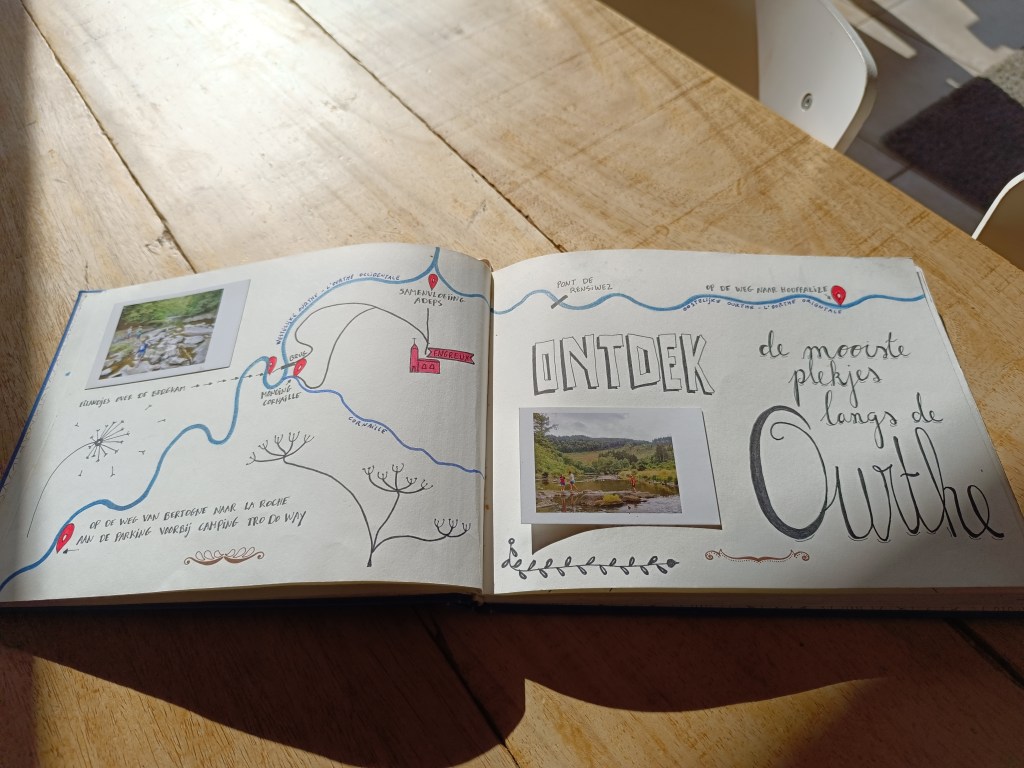 WESTELIJKE OURTHE - L'OURTHE OCCIDENTALE
SAMENVLOEIING
ADEPS
ENGREUX
BRUG
MONDING
CORNAILLE
CORNAILLE
PLANKJES OVER DE BROEBAM
OP DE WEG VAN BERTOGNE NAAR LA ROCHE
AAN DE PARKING VOORBIJ CAMPING TRO DO WAY
PONT DE
RENSIWEZ
OP DE WEG NAAR HOUFFALIZE
OOSTELIJKE OURTHE - L'OURTHE ORIENTALE
ONTDEK
de mooiste
plekjes
langs de
Ourthe